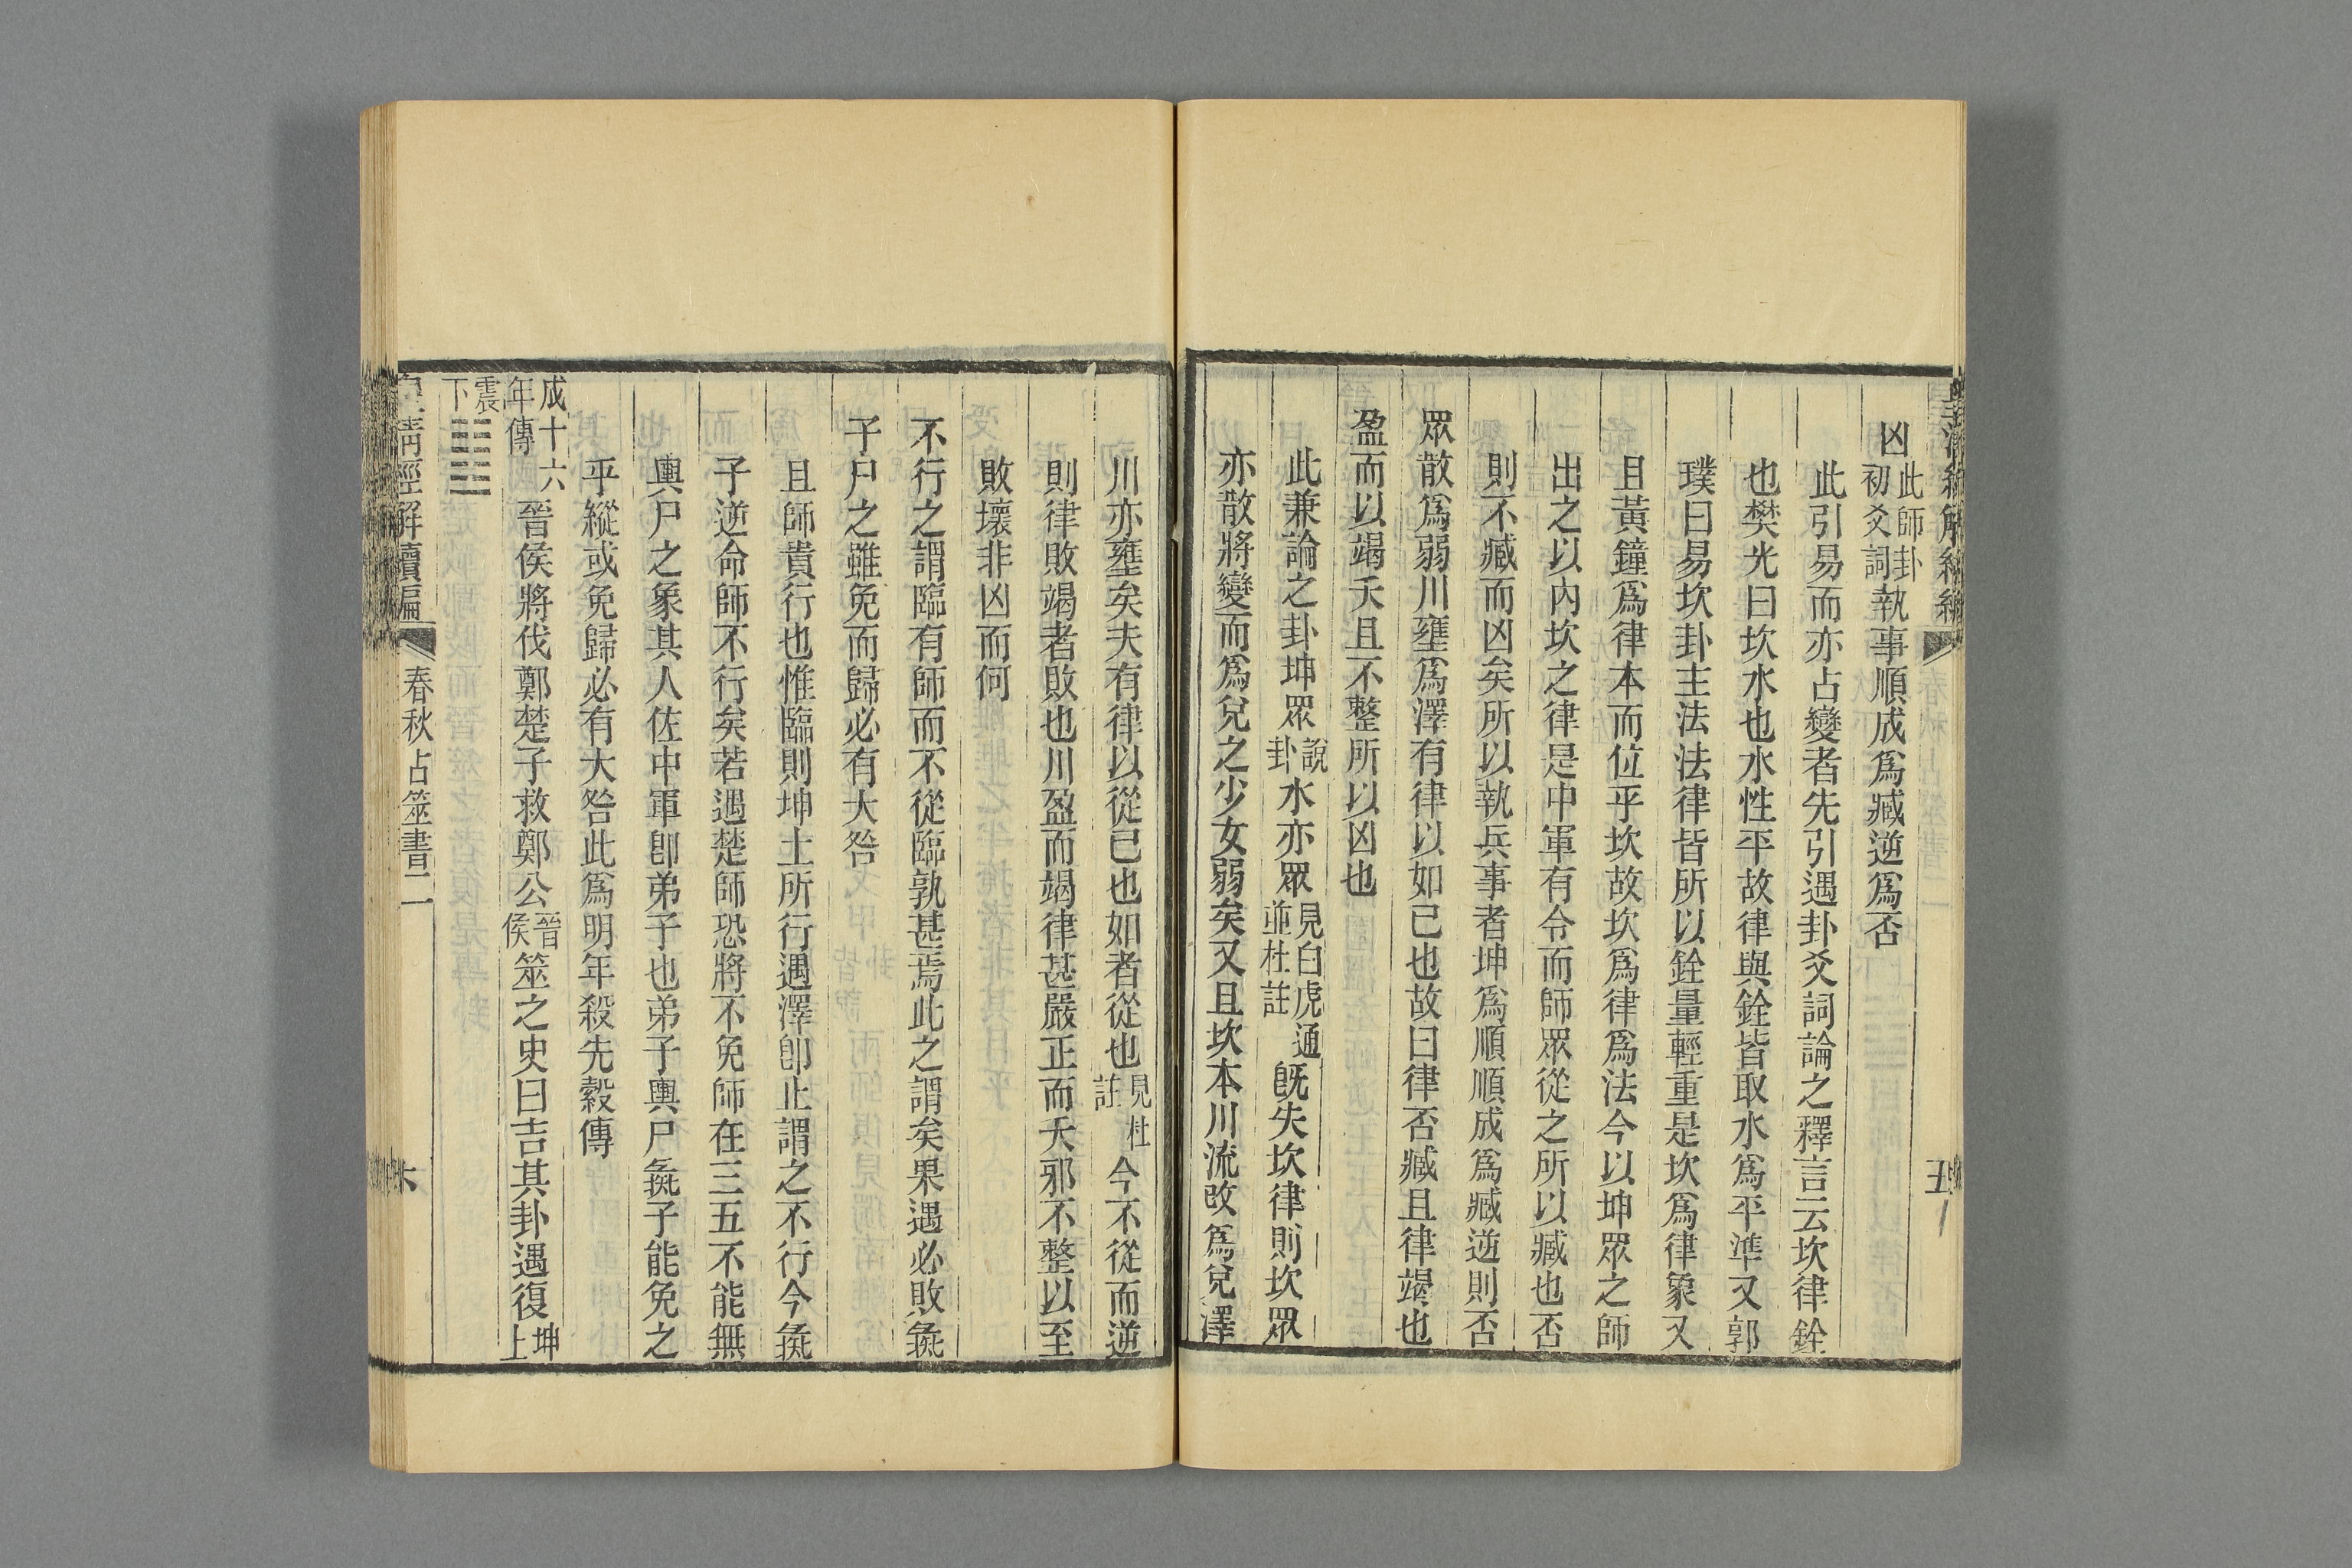 凶此師卦初爻詞執事順成爲臧逆爲否
此引易而亦占變者先引遇卦爻詞論之釋言云坎律銓
也樊光曰坎水也水性平故律與銓皆取水爲平準又郭
璞曰易坎卦主法法律皆所以銓量輕重是坎爲律象又
且黃鐘爲律本而位乎坎故坎爲律爲法今以坤眾之師
出之以內坎之律是中軍有令而師眾從之所以臧也否
則不臧而凶矣所以執兵事者坤爲順順成爲臧逆則否
眾散爲弱川壅爲澤有律以如已也故曰律否臧且律竭也
盈而以竭夭且不整所以凶也
此兼論之卦坤眾說卦水亦眾見白虎通並杜註旣失坎律則坎眾
亦散將變而爲兌之少女弱矣又且坎本川流改爲兌澤
川亦壅矣夫有律以從已也如者從也見杜註今不從而逆
則律敗竭者敗也川盈而竭律甚嚴正而夭邪不整以至
敗壞非凶而何
不行之謂臨有師而不從臨孰甚焉此之謂矣果遇必敗彘
子尸之雖免而歸必有大咎
且師貴行也惟臨則坤土所行遇澤卽止謂之不行今彘
子逆命師不行矣若遇楚師恐將不免師在三五不能無
輿尸之象其人佐中軍卽弟子也弟子輿尸彘子能免之
乎縱或免歸必有大咎此爲明年殺先縠傳
成十六年傳晉侯將伐鄭楚子救鄭公晉侯筮之史曰吉其卦遇復坤上
震下䷗
皇清經解續編
春秋占筮書二
六